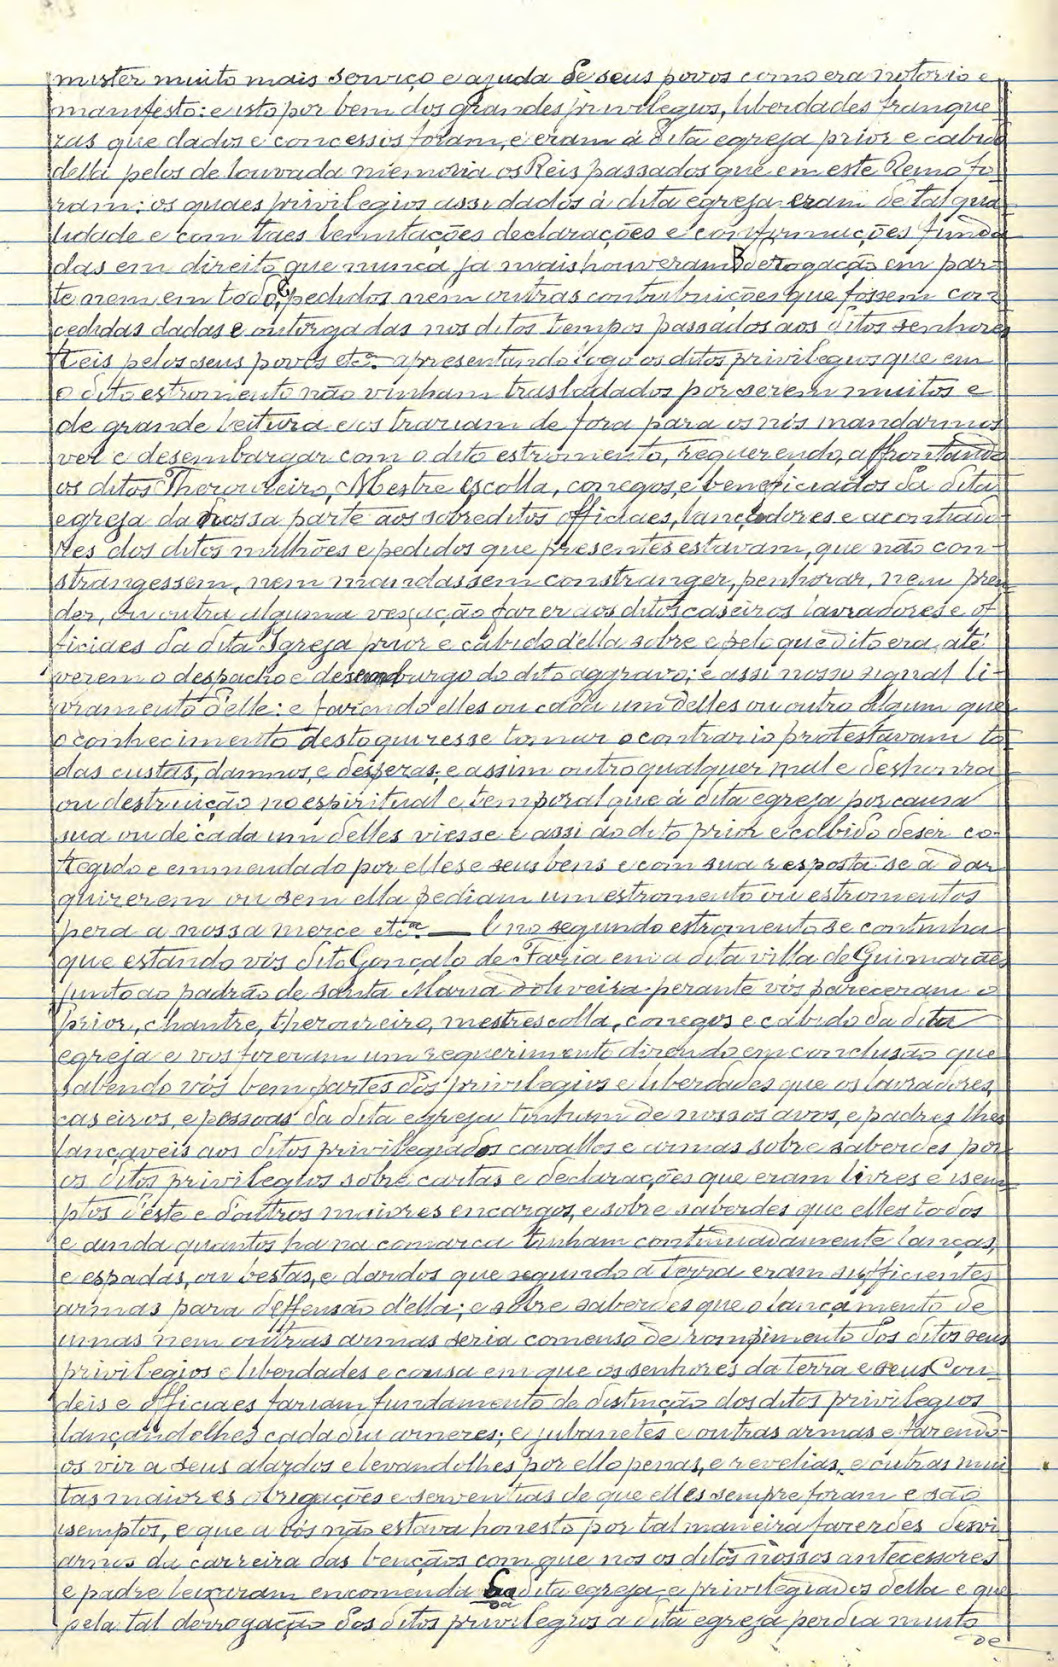 mister muito mais serviço e ajuda de seus povos como era notorio e
manifesto: e isto por bem dos grandes privilegios, liberdades franque
zas que dados e concessos foram, e eram á dita egreja prior e cabido
della pelos de louvada memoria os Reis passados que em este Reino fo-
ram: os quaes privilegios assi dados á dita egreja eram de tal qua
lidade e com taes lemitações declarações e confirmações funda
das em direito que nunca ja mais houveram derogação em par-
te nem em todo, pedidos nem outras contribuições que fossem con-
cedidas dadas e outorgadas nos ditos tempos passados aos ditos senhores
Reis pelos seus povos etcª apresentando logo os ditos privilegios que em
o dito estromento não vinham trasladados por serem muitos e
de grande leitura e os trariam de fora para os nós mandarmos
ver e desembargar com o dito estromento, requerendo, affrontando
os ditos Thezoureiro, Mestre Escolla, conegos, e beneficiados da dita
egreja da nossa parte aos sobreditos officiaes, lançadores e acontiado
res dos ditos milhões e pedidos que presentes estavam, que não con-
strangessem, nem mandassem constranger, penhorar, nem pren
der, ou outra alguma vexação fazer aos ditos caseiros lavradores e of
ficiaes da dita Igreja prior e cabido d'ella sobre e pelo que dito era, até
verem o despacho e desembargo do dito aggravo; e assi nosso signal li-
vramento d'elle: e fazendo elles ou cada um delles ou outro algum que
o conhecimento desto quizesse tomar o contrario protestavam to
das custas, damnos, e despezas, e assim outro qualquer mal e deshonra
ou destruição no espiritual e temporal que á dita egreja por causa
sua ou de cada um delles viesse e assi ao dito prior e cabido deser co-
rregido e emmendado por elles e seus bens e com sua resposta se a dar
quizerem ou sem ella pediam um estromento ou estromentos
pera a nossa merce etcª — E no segundo estromento se continha
que estando vós dito Gonçalo de Faria em a dita villa de Guimarães
junto ao padrão de santa Maria d'oliveira perante vós pareceram o
prior, chantre, thezoureiro, mestrescolla, conegos e cabido da dita
egreja e vos fizeram um requerimento dizendo em conclusão que
sabendo vós bem partes dos privilegios e liberdades que os lavradores,
caseiros, e pessoas da dita egreja tinham de nossos avos, e padres lhes
lançaveis aos ditos privilegiados cavallos e armas sobre saberdes por
os ditos privilegios sobre cartas e declarações que eram livres e isem
ptos d'este e d'outros maiores encargos, e sobre saberdes que elles todos
e ainda quantos ha na comarca tinham continuadamente lanças,
e espadas, ou bestas, e dardos que segundo a terra eram sufficientes
armas para deffensão d'ella; e sobre saberdes que o lançamento de
umas nem outras armas seria comenso de rompimento dos ditos seus
privilegios e liberdades e causa em que os senhores da terra e seus Cou-
deis e officiaes fariam fundamento de distinção dos ditos privilegios
lançandolhes cada diu arnezes; e jubanetes e outras armas e fazendo-
os vir a seus alardos e levandolhes por ello penas, e revelias, e outras mui
tas maiores obrigações e serventias de que elles sempre foram e são
isemptos, e que a vós não estava honesto por tal maneira fazerdes desvi
armos da carreira das bençãos com que nos os ditos nossos antecessores
e padre leixaram encomenda da dita egreja e privilegiados della e que
pela tal derrogação dos ditos privilegios a dita egreja perdia muito
de